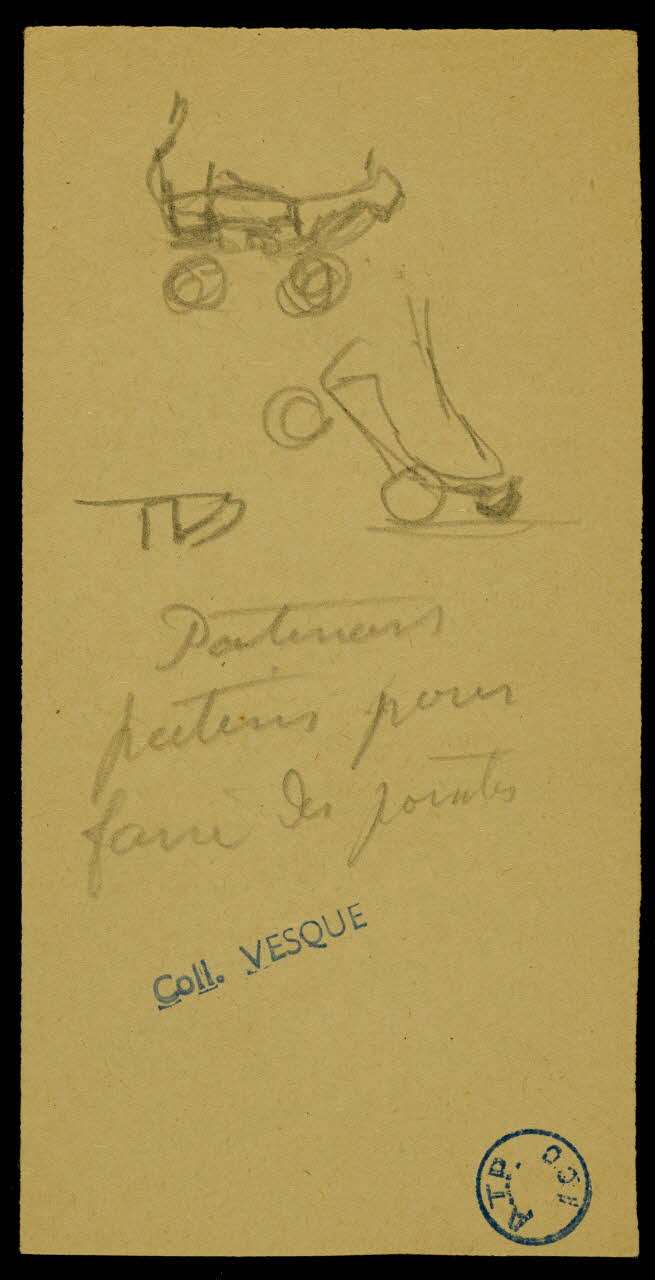 Patineurs
patins pour
faire des pointes
Coll. VESQUE
ATP.